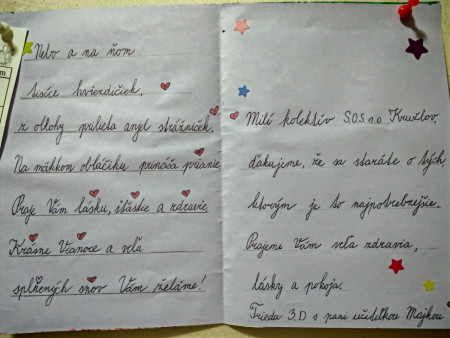 Nebo a na ňom
tisíce hviezdičiek,
z oblohy prilieta anjel strážniček.
Na mäkkom obláčiku prináša prianie.
Praje Vám lásku, šťastie a zdravie
Krásne Vianoce a veľa
splnených snov Vám želáme!
Milí kolektív S.O.S. n.o. Kružlov,
ďakujeme, že sa staráte o tých
ktorým je to najpotrebnejšie.
Prajeme Vám veľa zdravia,
lásky a pokoja.
Trieda 3.D s pani učiteľkou Majkou